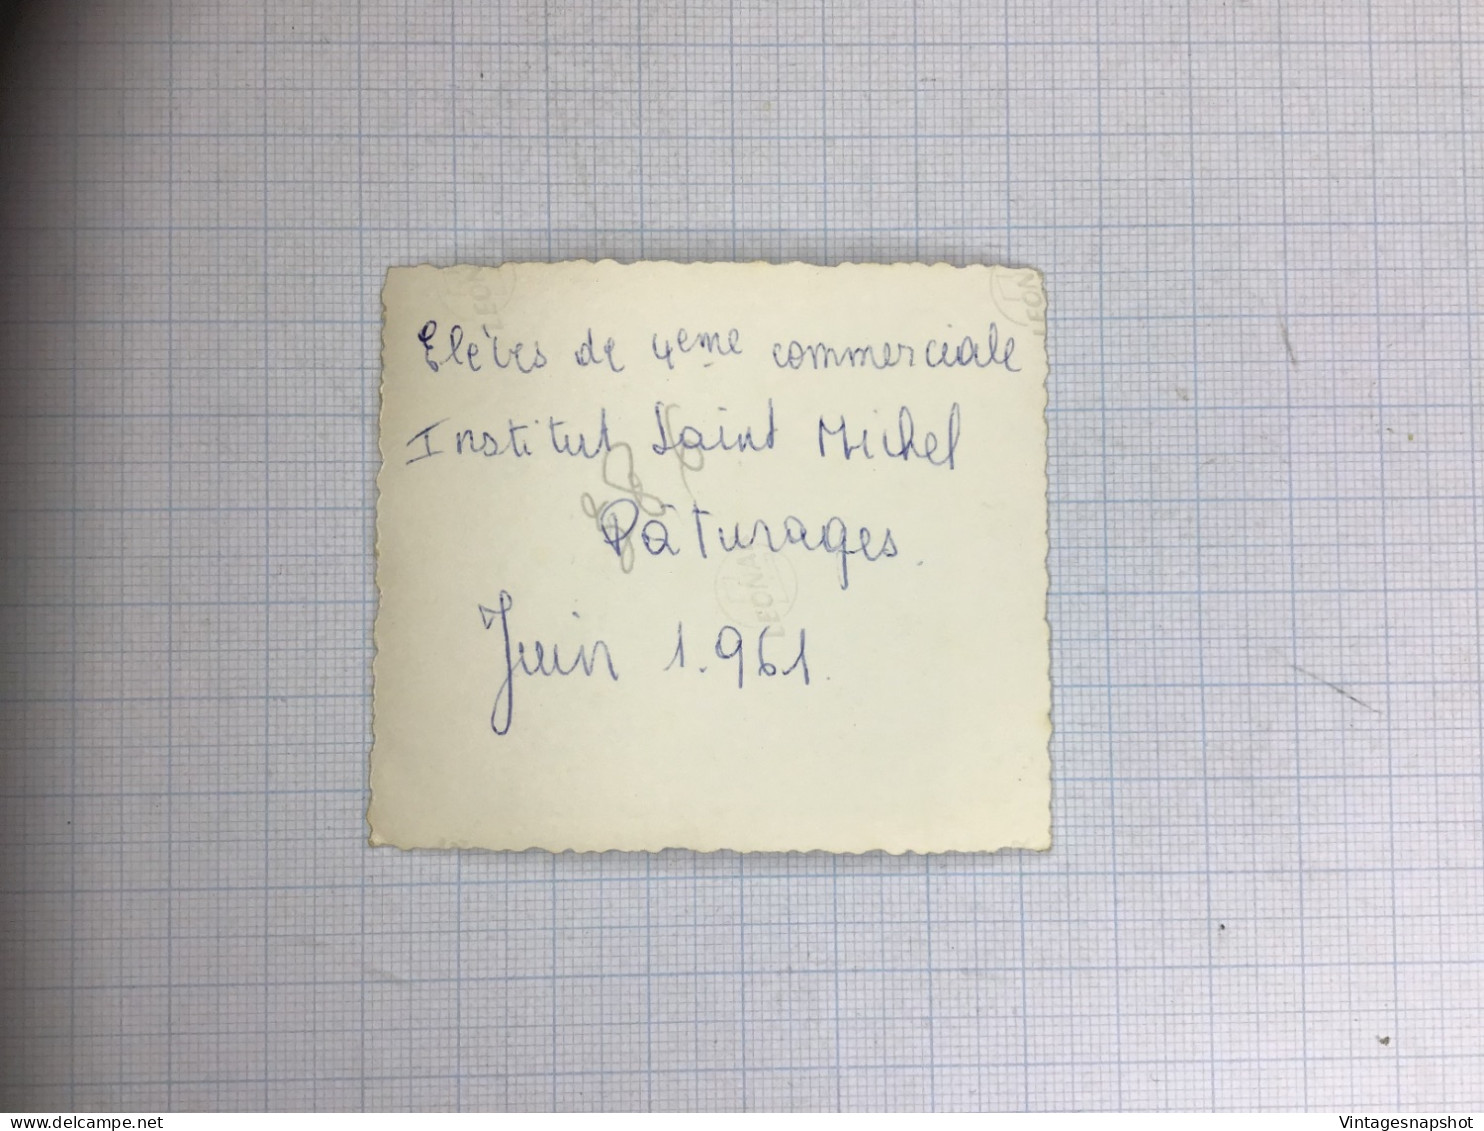 Elèves de 4eme commerciale
Institut Saint Michel
Pâturages.
Juin 1.961.
LEON
LEON
LEONA
www.delcampe.net
Vintagesnapshot